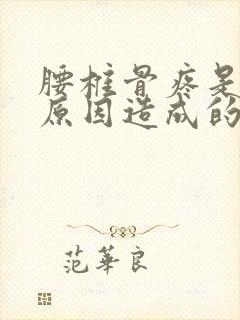 腰椎骨疼是
原因造成的
范華良